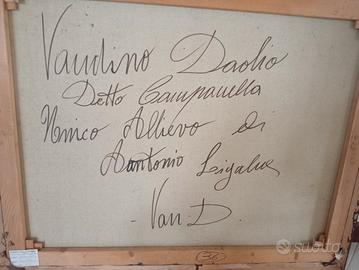 Vandino Daolio
Detto Campanella
Unico Allievo di
Antonio Ligabue
- Van D.
34
Subito